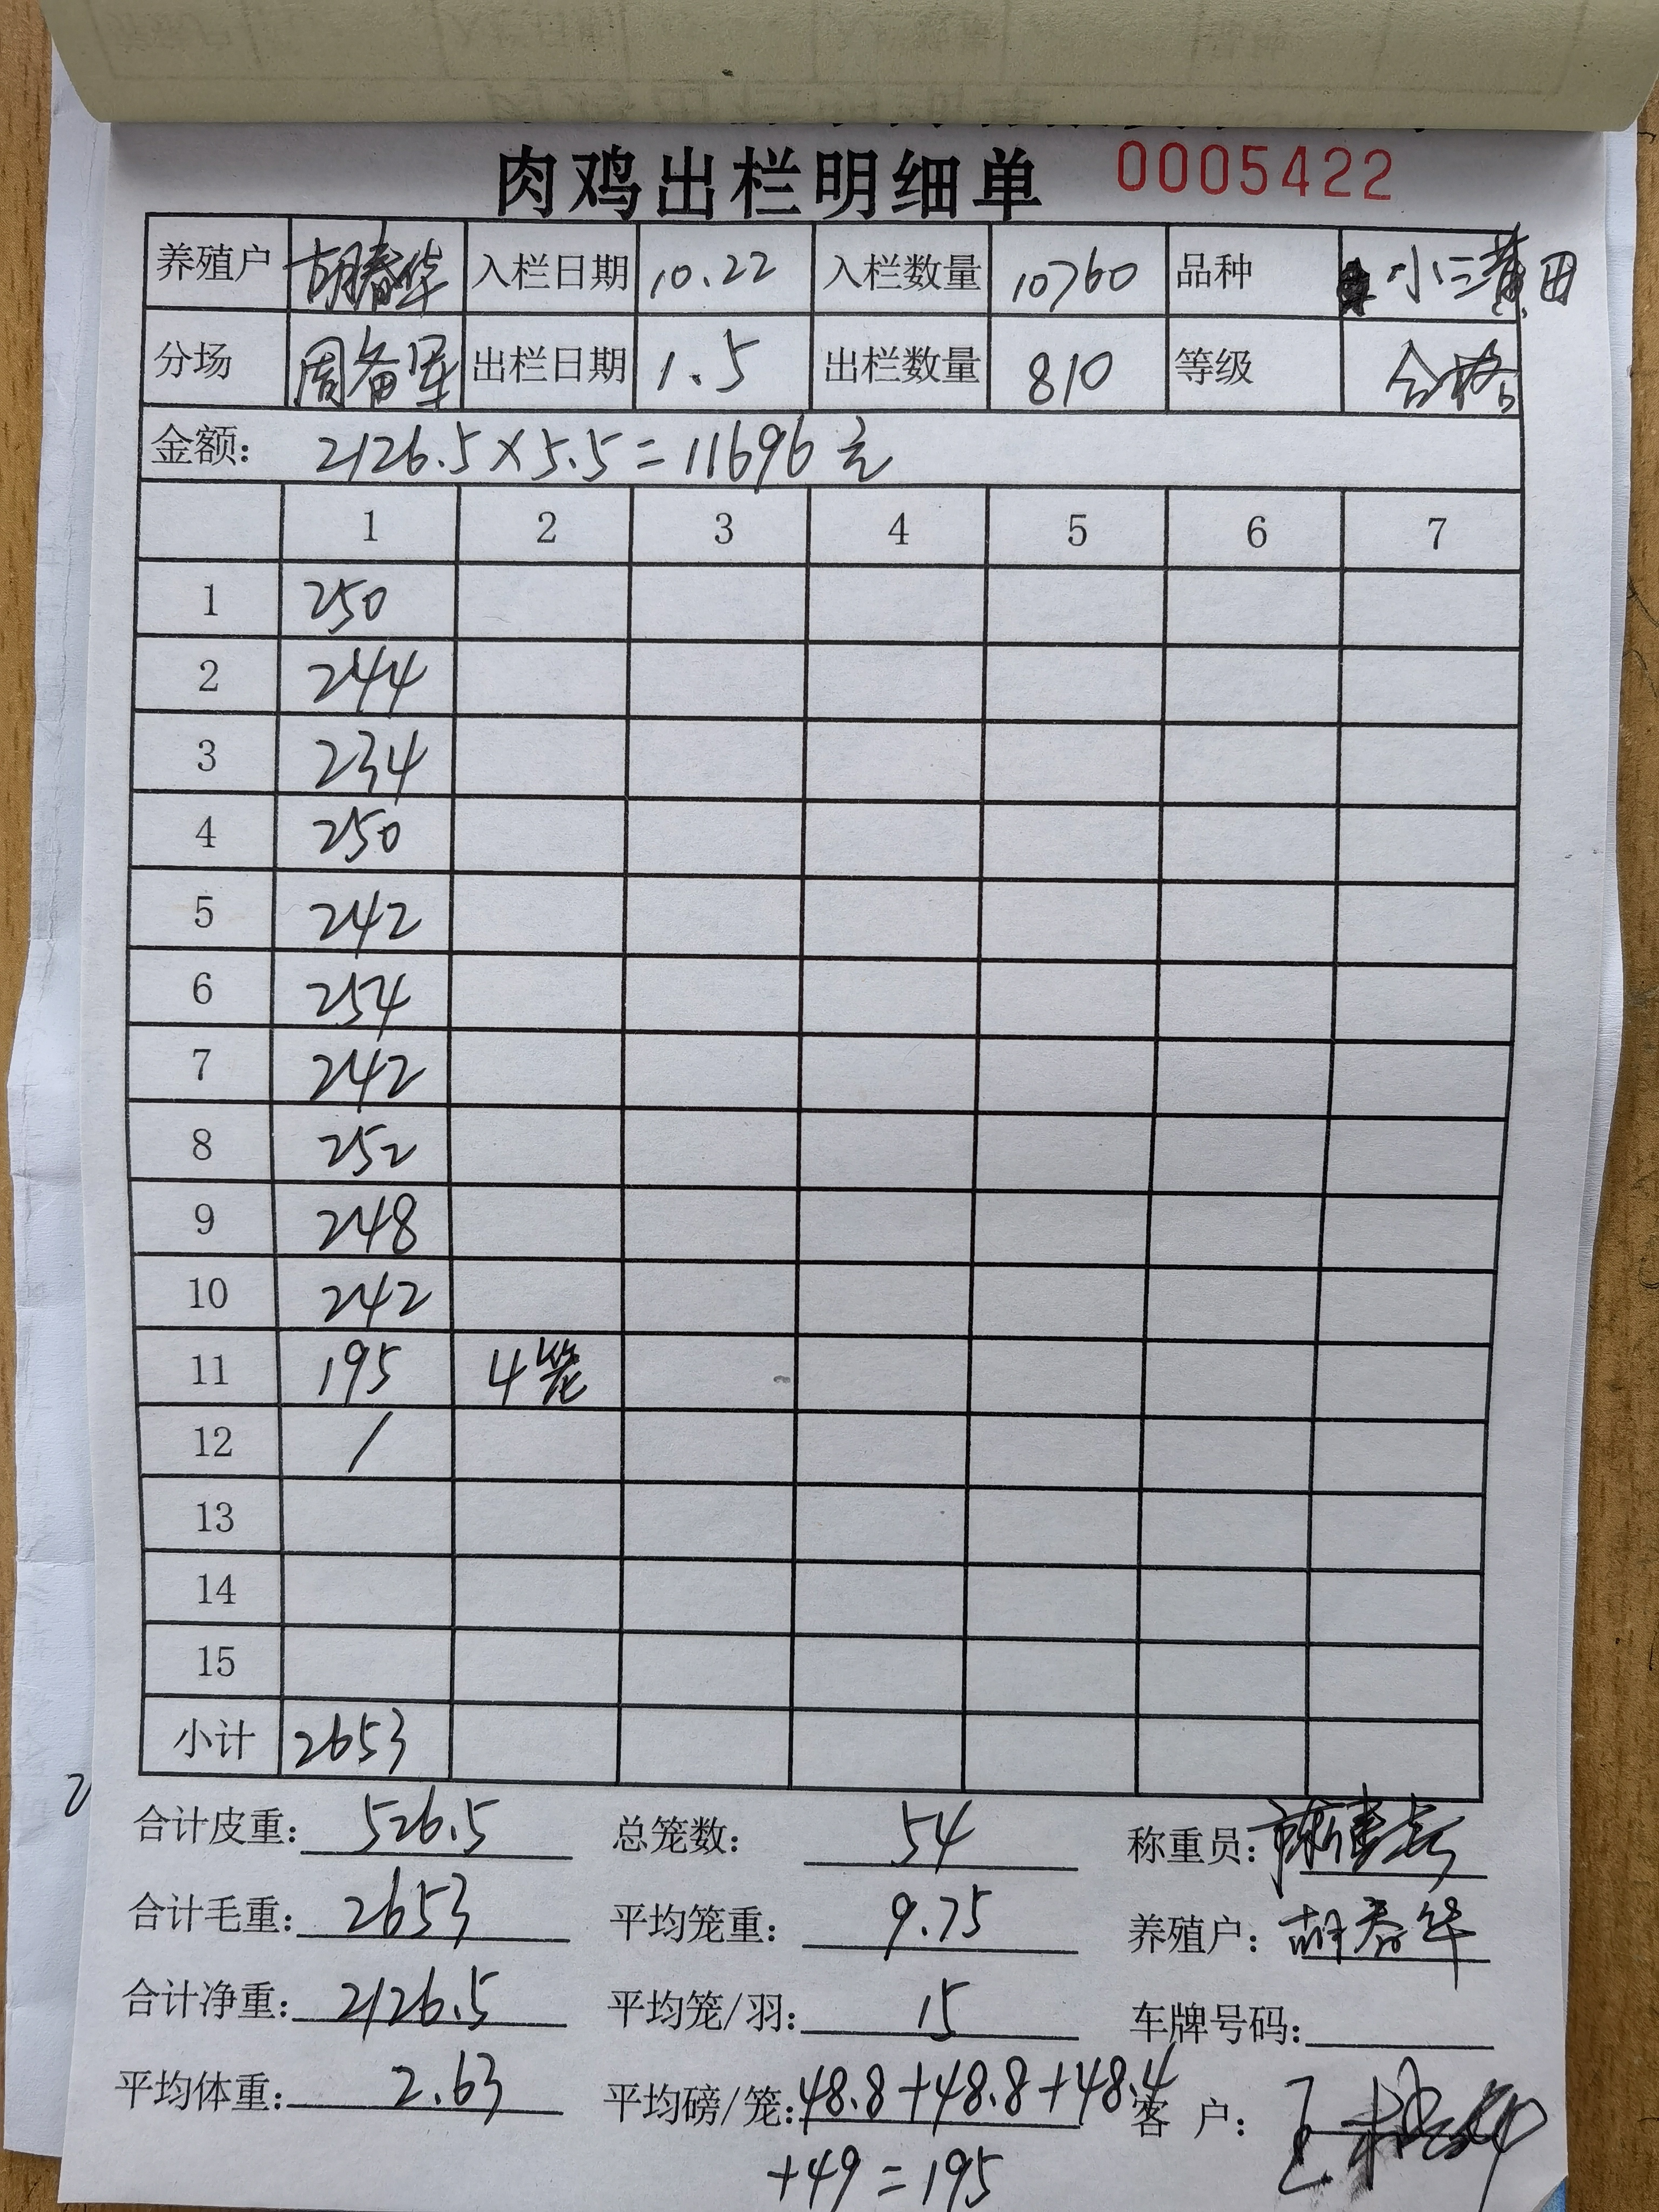 肉鸡出栏明细单 0005422
养殖户 胡春华 入栏日期 10.22 入栏数量 10760 品种 小三黄田
分场 周备军 出栏日期 1.5 出栏数量 810 等级 合格
金额： 2126.5×5.5=11696元
1 2 3 4 5 6 7
1 250
2 244
3 234
4 250
5 242
6 254
7 242
8 252
9 248
10 242
11 195 4笼
12 /
13
14
15
小计 2653
合计皮重： 526.5 总笼数： 54 称重员：
合计毛重： 2653 平均笼重： 9.75 养殖户： 胡春华
合计净重： 2126.5 平均笼/羽： 15 车牌号码：
平均体重： 2.63 平均磅/笼： 48.8+48.8+48.4 客 户：
+49=195